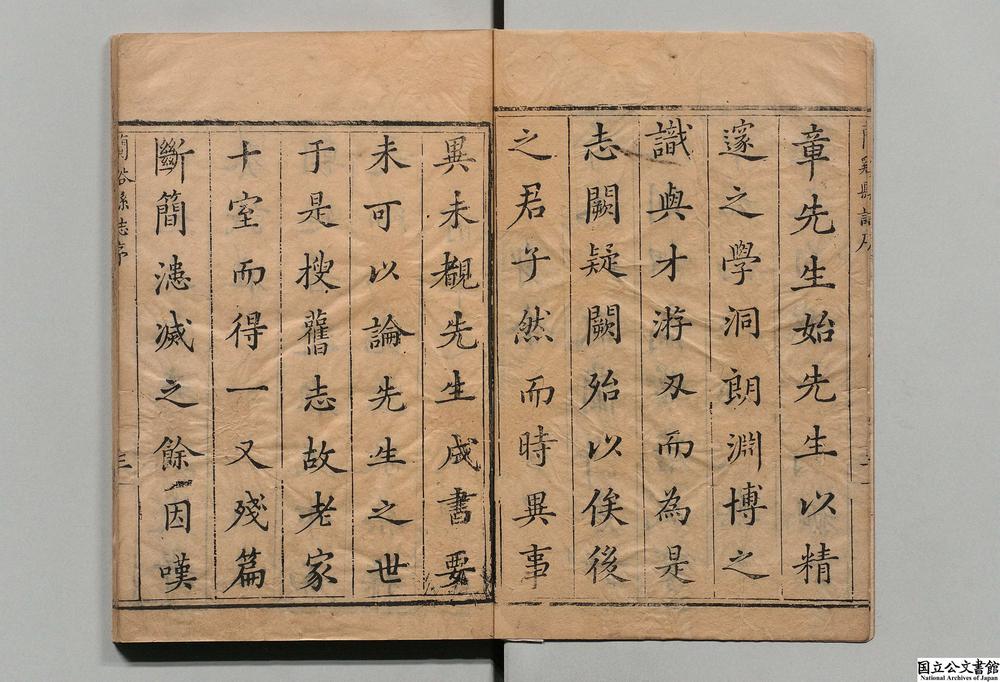 章先生始先生以精
邃之學洞朗淵博之
識與才游刃而為是
志闕疑闕殆以俟後
之君子然而時異事
異未覩先生成書要
未可以論先生之世
于是搜舊志故老家
十室而得一又殘篇
斷簡漶滅之餘因嘆
蘭谿縣志序
三
国立公文書館
National Archives of Japan